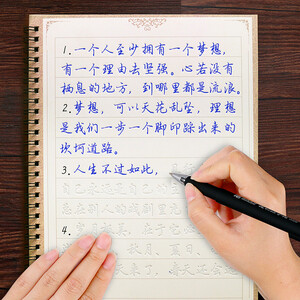 1.一个人至少拥有一个梦想，
有一个理由去坚强。心若没有
栖息的地方，到哪里都是流浪。
2.梦想，可以天花乱坠，理想
是我们一步一个脚印踩出来的
坎坷道路。
3.人生不过如此，
4.
秋月、夏日、